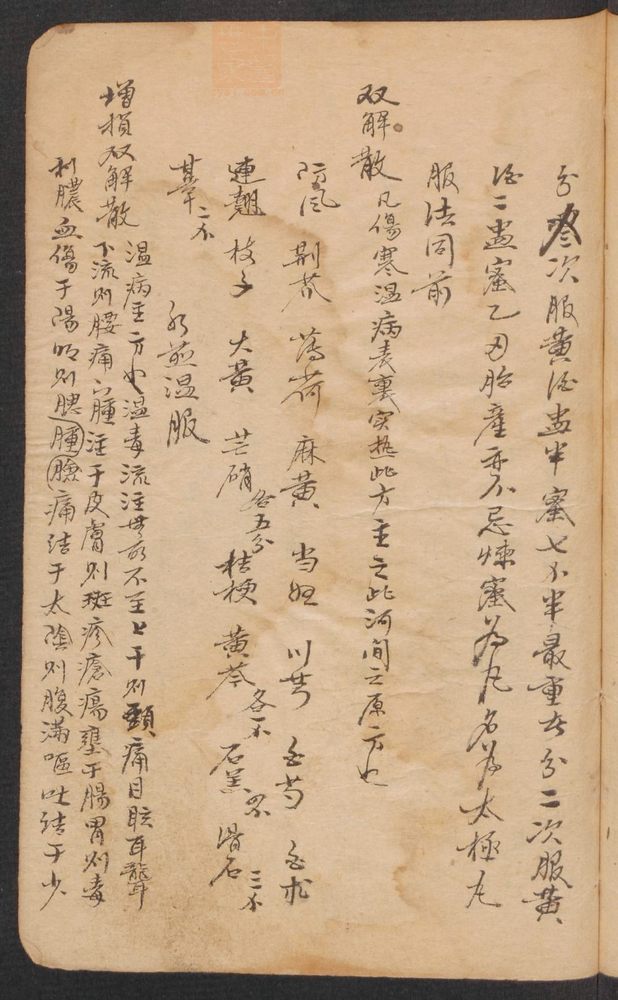 分叄次服黄酒盅半蜜七不半最重者分二次服黄
酒二盅蜜乙因胎產亦不忌煉蜜為丸名為太極丸
服法同前
双解散 凡傷寒温病表裏实热此方主之此河间之原方也
防风 荆芥 薄荷 麻黄 当归 川芎 白芍 白朮
連翹 枝子 大黄 芒硝各五分 桔梗 黄芩各不 石羔 滑石三不
草二不 水煎温服
增損双解散 温病主方也温毒流注無所不至上干则頭痛目眩耳聾
下流则腰痛足腫注于皮膚则斑疹瘡瘍壅于腸胃则毒
利膿血傷于陽明则腮腫臉痛結于太陰则腹滿嘔吐結于少